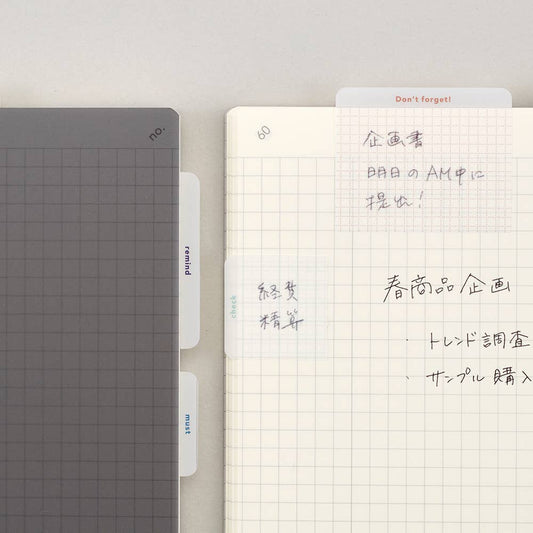 no.
remind
must
60
Don't forget!
企画書
明日のAM中に
提出!
check
経費
精算
春商品企画
・トレンド調査
・サンプル購入